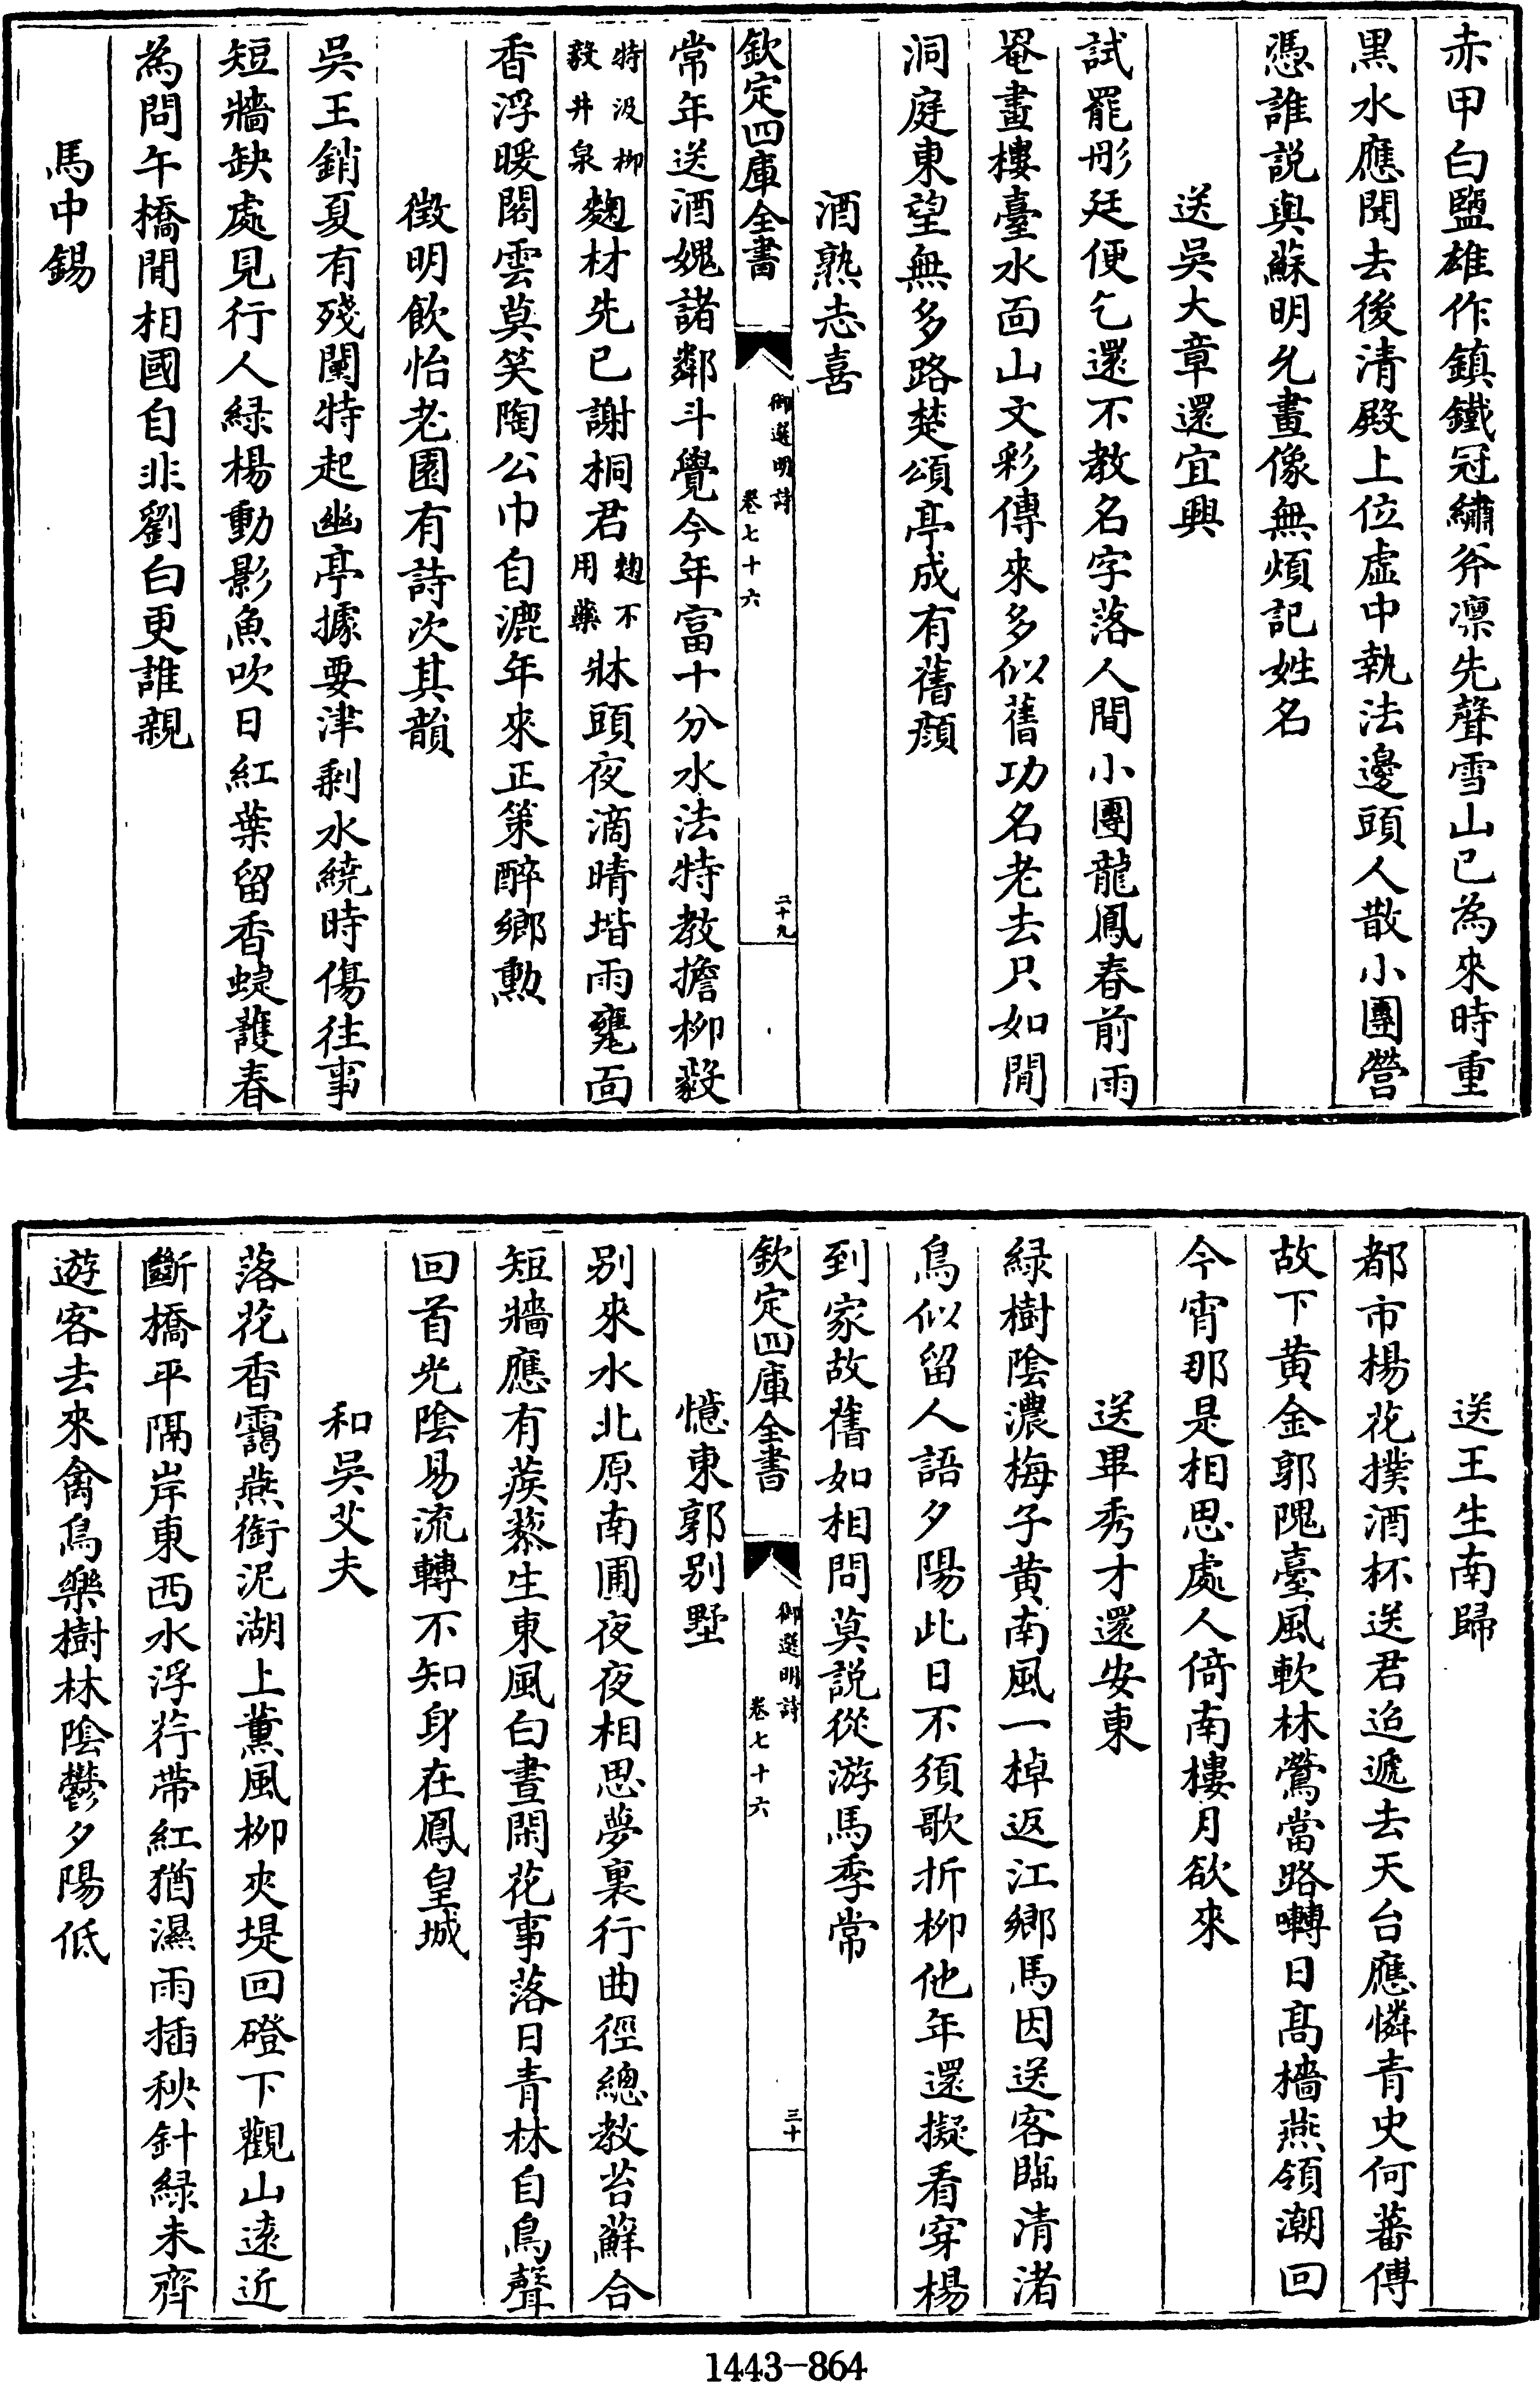 赤甲白鹽雄作鎮鐵冠繡斧凛先聲雪山已為來時重
黒水應聞去後清殿上位虚中執法邊頭人散小團營
憑誰説與蘇明允畫像無煩記姓名
送吳大章還宜興
試罷彤廷便乞還不教名字落人間小團龍鳳春前雨
罨畫樓臺水面山文彩傳來多似舊功名老去只如閒
洞庭東望無多路楚頌亭成有舊顔
酒熟志喜
欽定四庫全書
御選明詩
卷七十六
二十九
常年送酒媿諸鄰斗覺今年富十分水法特教擔柳毅
特汲柳
毅井泉
麴材先已謝桐君
麴不
用藥
牀頭夜滴晴堦雨甕面
香浮暖閣雲莫笑陶公巾自漉年來正策醉鄉勲
徵明飲怡老園有詩次其韻
吳王銷夏有殘闉特起幽亭據要津剩水繞時傷往事
短牆缺處見行人緑楊動影魚吹日紅葉留香蜨護春
為問午橋閒相國自非劉白更誰親
馬中錫
送王生南歸
都市楊花撲酒杯送君迢遞去天台應憐青史何蕃傳
故下黄金郭隗臺風軟林鶯當路囀日髙檣燕領潮回
今宵那是相思處人倚南樓月欲來
送畢秀才還安東
緑樹陰濃梅子黄南風一棹返江鄉馬因送客臨清渚
鳥似留人語夕陽此日不須歌折柳他年還擬看穿楊
到家故舊如相問莫説從游馬季常
欽定四庫全書
御選明詩
卷七十六
三十
憶東郭别墅
别來水北原南圃夜夜相思夢裏行曲徑總教苔蘚合
短牆應有蒺藜生東風白晝閑花事落日青林自鳥聲
回首光陰易流轉不知身在鳳皇城
和吳艾夫
落花香靄燕銜泥湖上薰風柳夾堤回磴下觀山逺近
斷橋平隔岸東西水浮荇帶紅猶濕雨插秧針緑未齊
遊客去來禽鳥樂樹林陰鬱夕陽低
1443-864